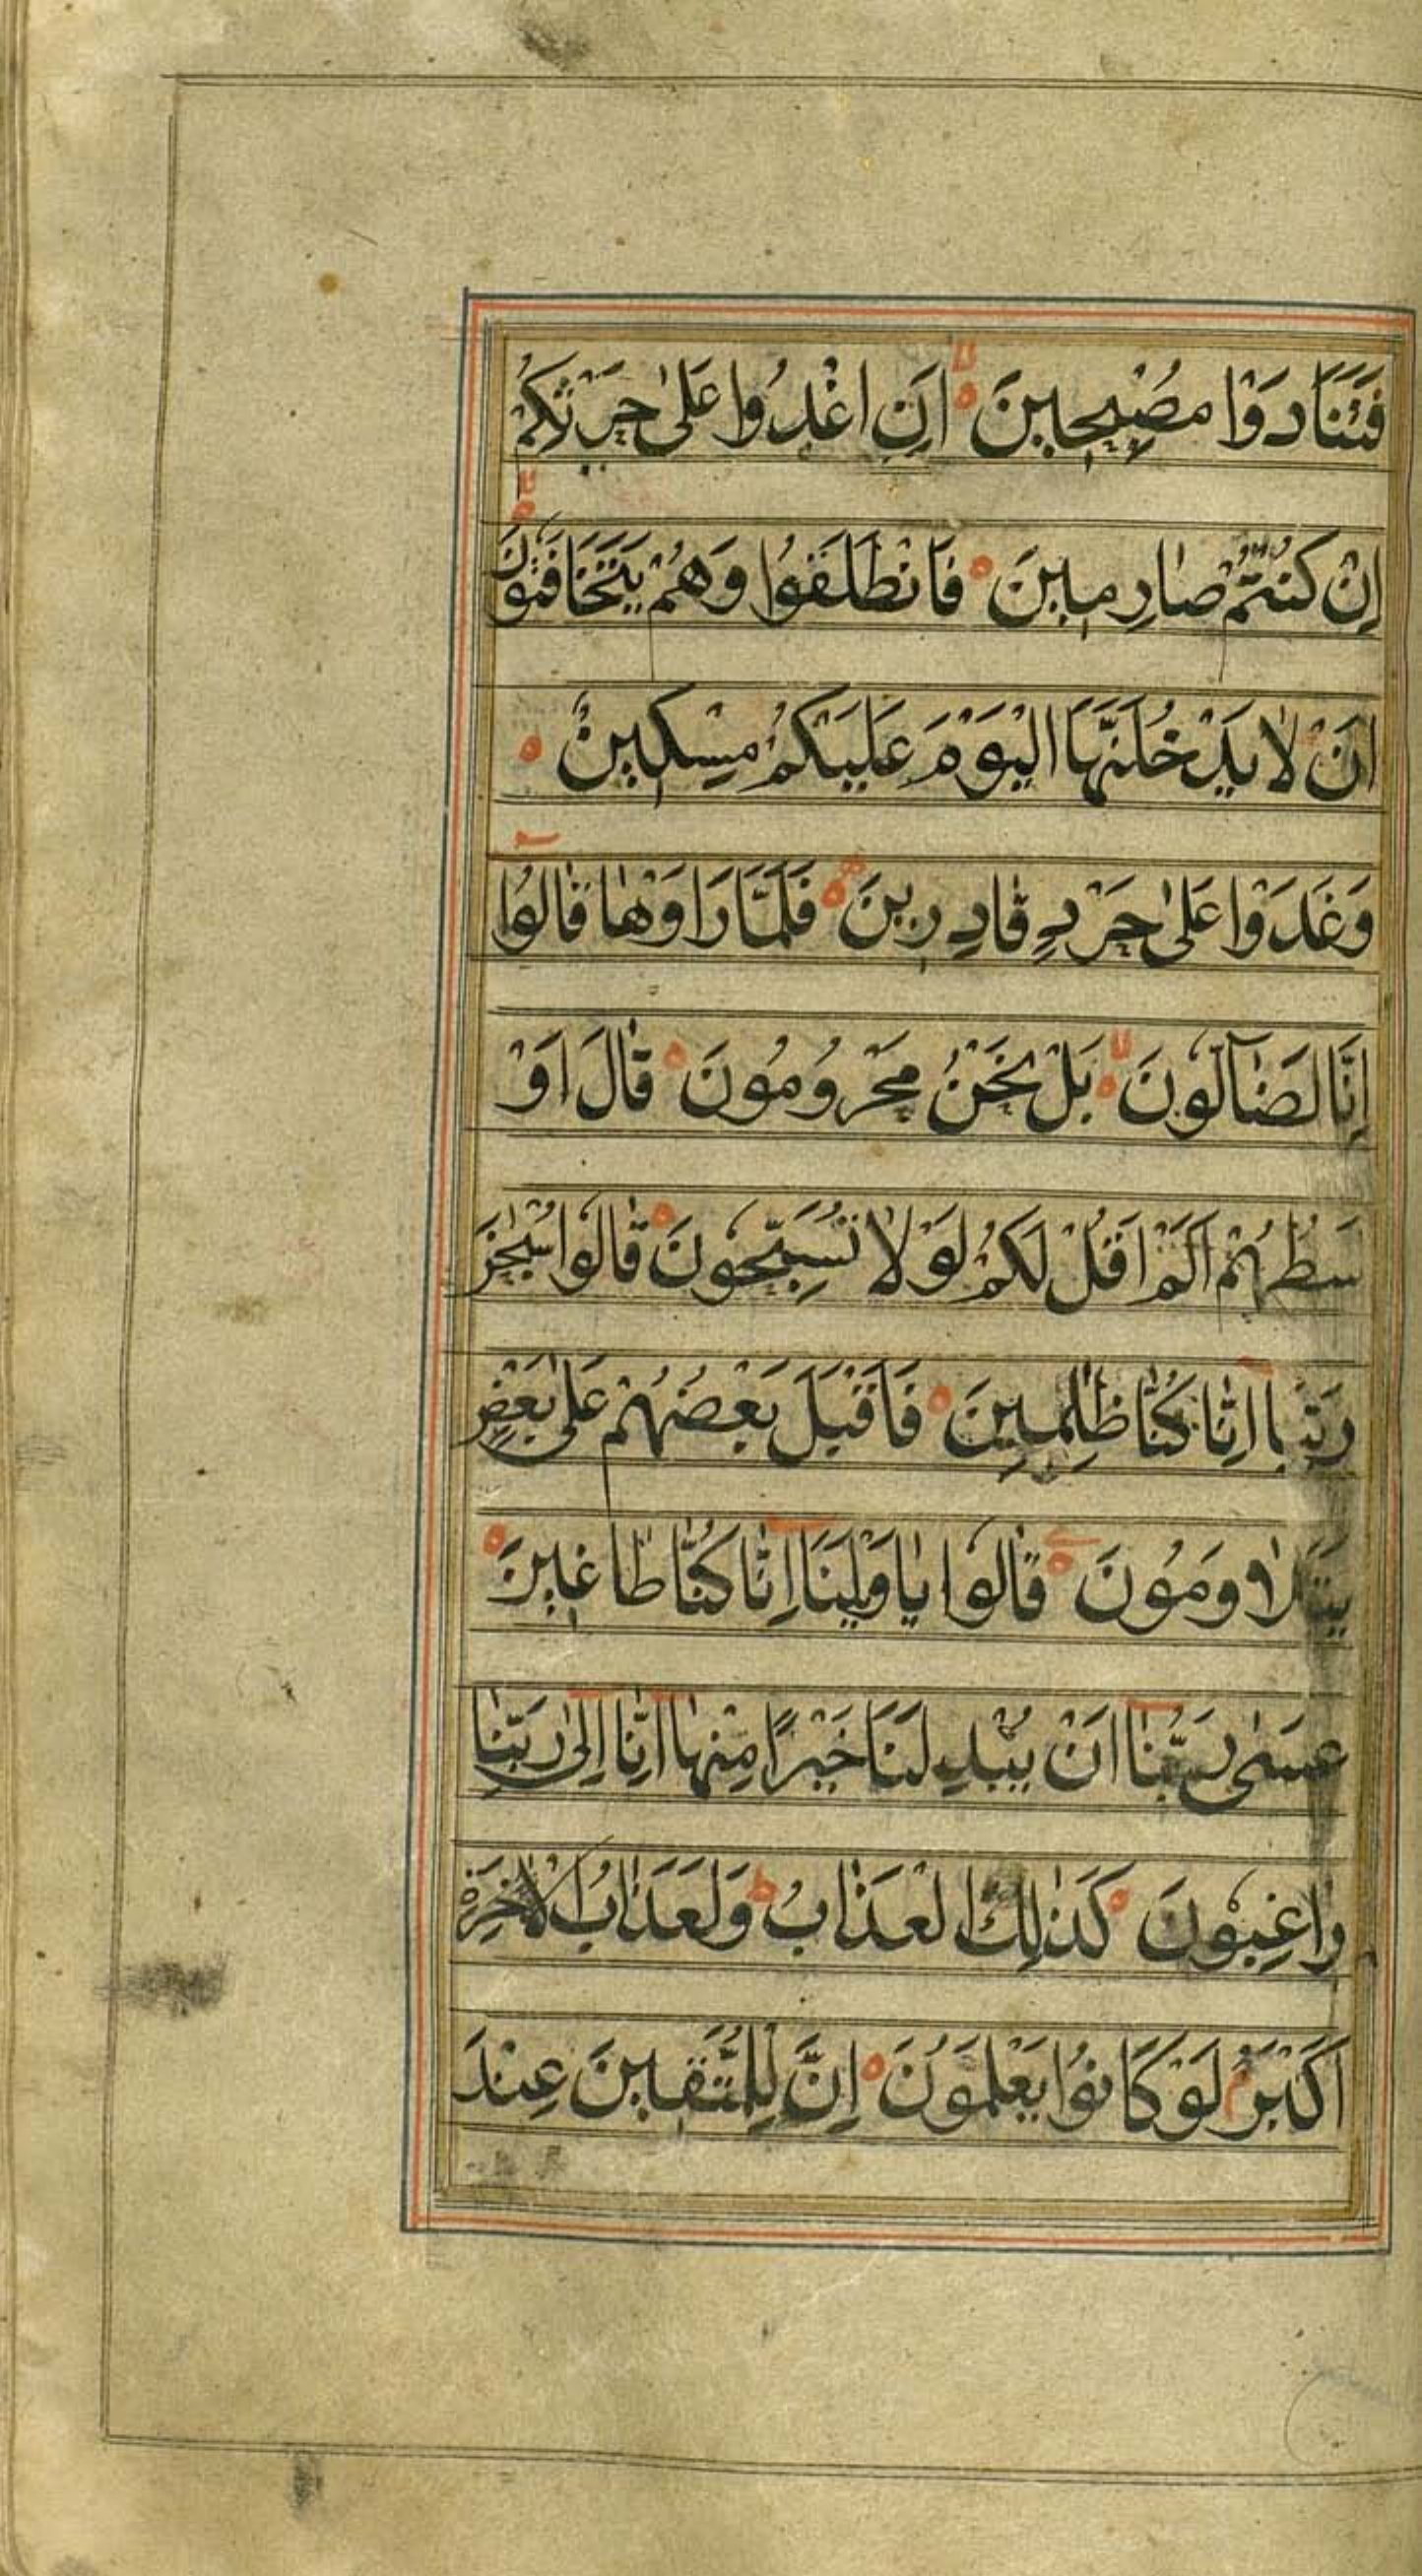 فَتَنَادَوْا مُصْبِحِينَ اَنِ اغْدُوا عَلىٰ حَرْثِكُمْ
اِنْ كُنْتُمْ صٰارِمِينَ فَانْطَلَقُوا وَهُمْ يَتَخَافَتُونَ
اَنْ لٰا يَدْخُلَنَّهَا الْيَوْمَ عَلَيْكُمْ مِسْكِينٌ
وَغَدَوْا عَلىٰ حَرْدٍ قٰادِرِينَ فَلَمَّا رَاَوْهٰا قٰالُوا
اِنَّا لَضٰآلُّونَ بَلْ نَحْنُ مَحْرُومُونَ قٰالَ اَوْ
سَطُهُمْ اَلَمْ اَقُلْ لَكُمْ لَوْ لٰا تُسَبِّحُونَ قٰالُوا سُبْحٰنَ
رَبِّنٰا اِنّٰا كُنّٰا ظٰلِمِينَ فَاَقْبَلَ بَعْضُهُمْ عَلىٰ بَعْضٍ
يَتَلٰاوَمُونَ قٰالُوا يٰا وَيْلَنَا اِنّٰا كُنّٰا طٰاغِينَ
عَسىٰ رَبُّنٰا اَنْ يُبْدِلَنَا خَيْرًا مِنْهٰا اِنّٰا اِلىٰ رَبِّنٰا
رٰاغِبُونَ كَذٰلِكَ الْعَذٰابُ وَلَعَذٰابُ الْاٰخِرَةِ
اَكْبَرُ لَوْ كَانُوا يَعْلَمُونَ اِنَّ لِلْمُتَّقِينَ عِنْدَ